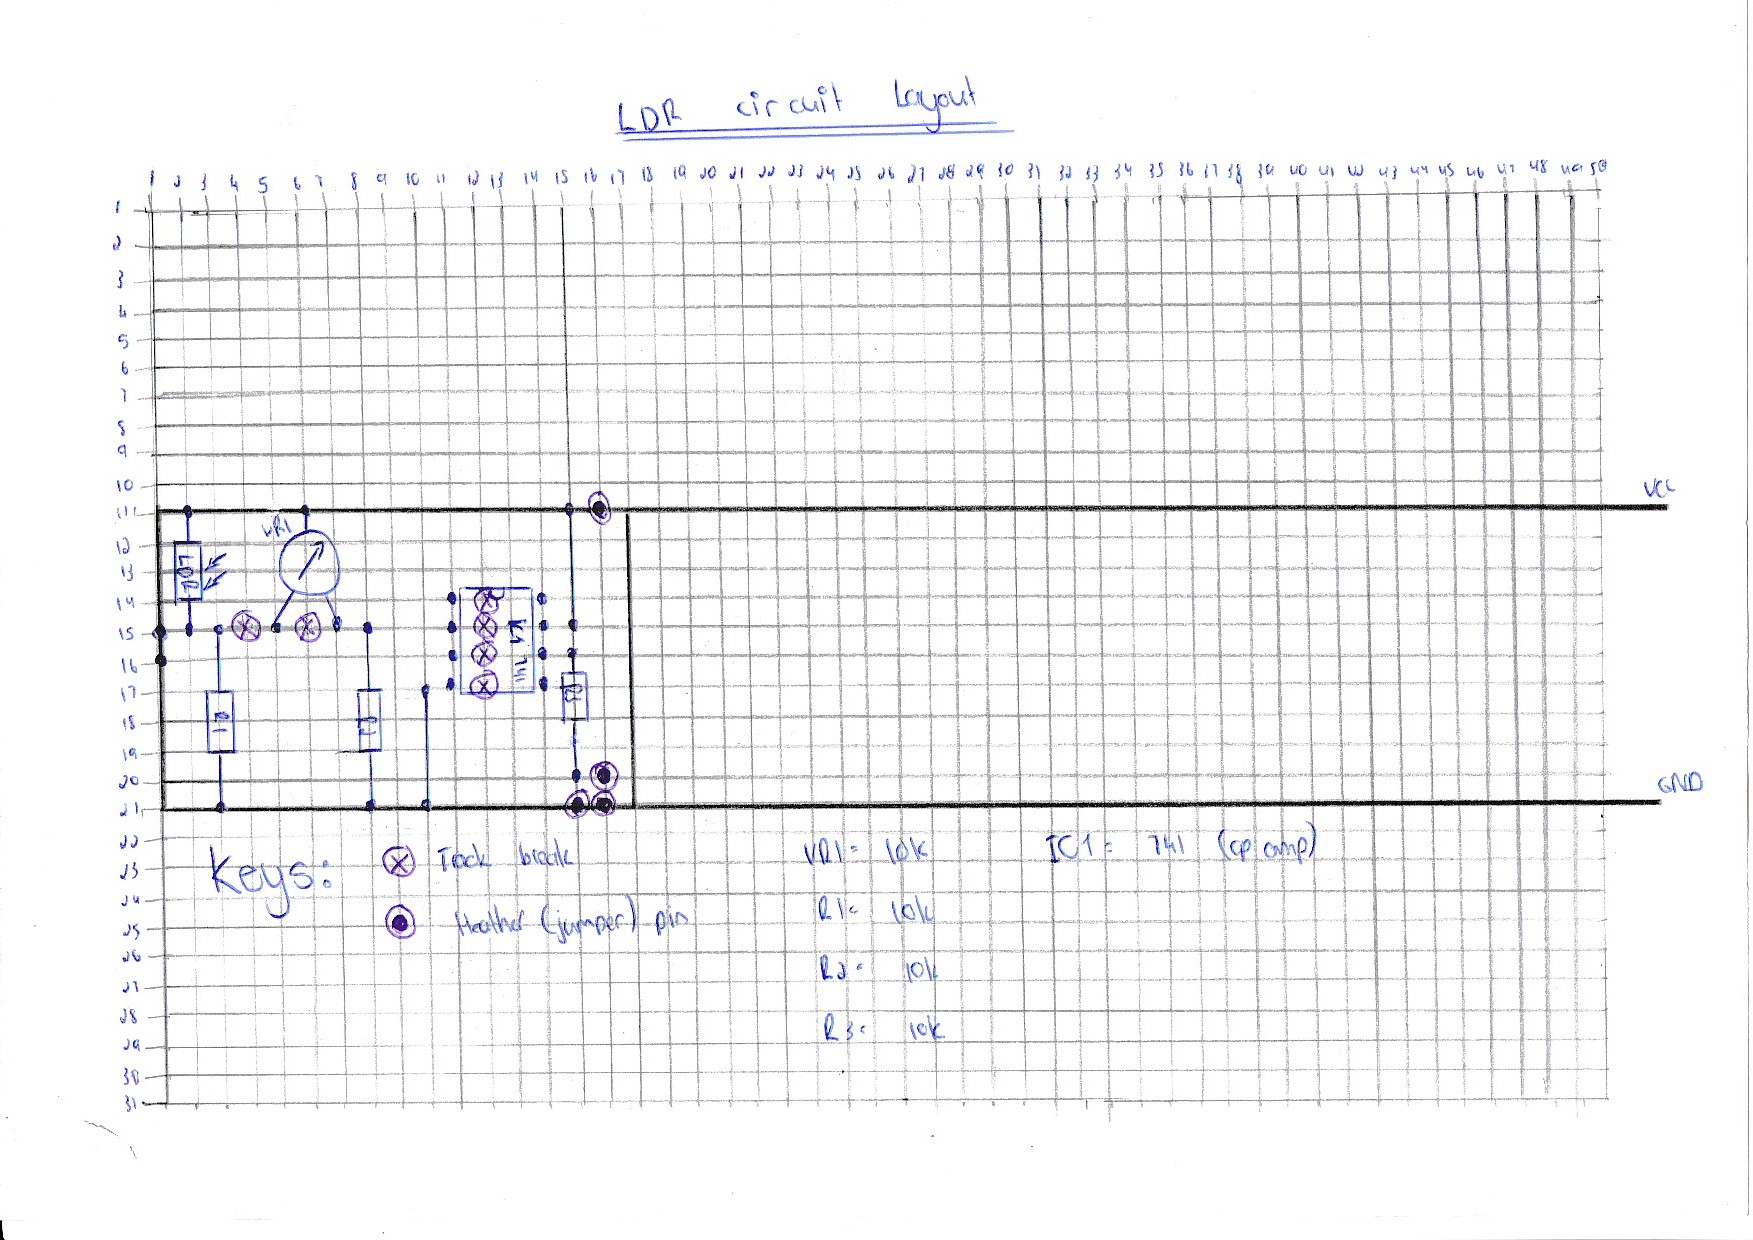 LDR circuit Layout
1 2 3 4 5 6 7 8 9 10 11 12 13 14 15 16 17 18 19 20 21 22 23 24 25 26 27 28 29 30 31 32 33 34 35 36 37 38 39 40 41 42 43 44 45 46 47 48 49 50
1
2
3
4
5
6
7
8
9
10
VCC
11
VR1
12
LDR
13
14
15
741
16
17
R1
18
19
20
GND
21
22
Keys:
Track break
VR1= 10k
IC1= 741 (op amp)
23
24
R1= 10k
25
Heather (jumper) pin
26
R2= 10k
27
28
R3= 10k
29
30
31